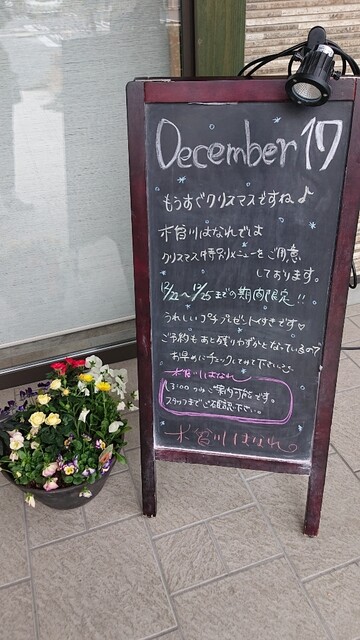 December 17
もうすぐクリスマスですね♪
木曽川はなれでは
クリスマス特別メニューをご用意
しております。
12/22〜12/25までの期間限定!!
うれしいプチプレゼント付きです♡
ご予約もあと残りわずかとなっているので
お早めにチェックしてみて下さいね。
木曽川はなれ
13:00〜のみご案内可能です。
スタッフまでご確認下さい。
木曽川はなれ